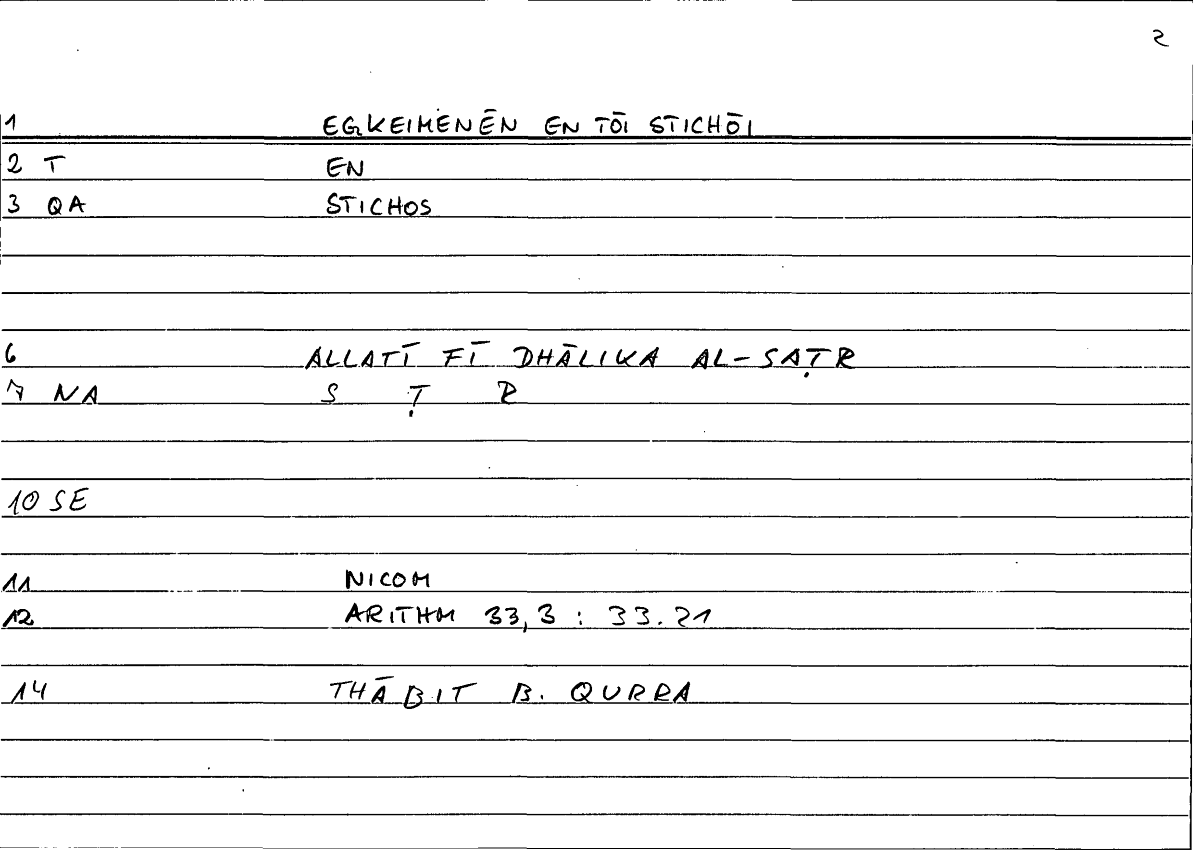 2
1 EGKEIMENĒN EN TŌI STICHŌI
2 T EN
3 QA STICHOS
6 ALLATĪ FĪ DHĀLIKA AL-SAṬR
7 NA S Ṭ R
10 SE
11 NICOM
12 ARITHM 33,3 : 33.21
14 THĀBIT B. QURRA